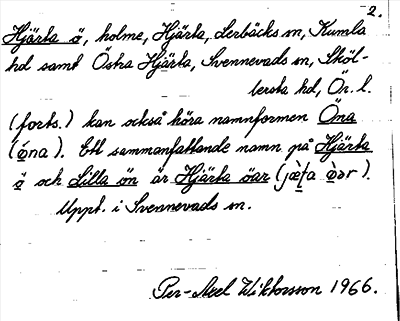 2.
Hjärta ö, holme, Hjärta, Lerbäcks sn, Kumla
hd samt Östra Hjärta, Svennevads sn, Sköl-
lersta hd, Ör. l.
(forts.) kan också höra namnformen Öna
(ǿna). Ett sammanfattande namn på Hjärta
ö och Lilla ön är Hjärta öar
Uppt. i Svennevads sn.
Per-Axel Wiktorsson 1966.